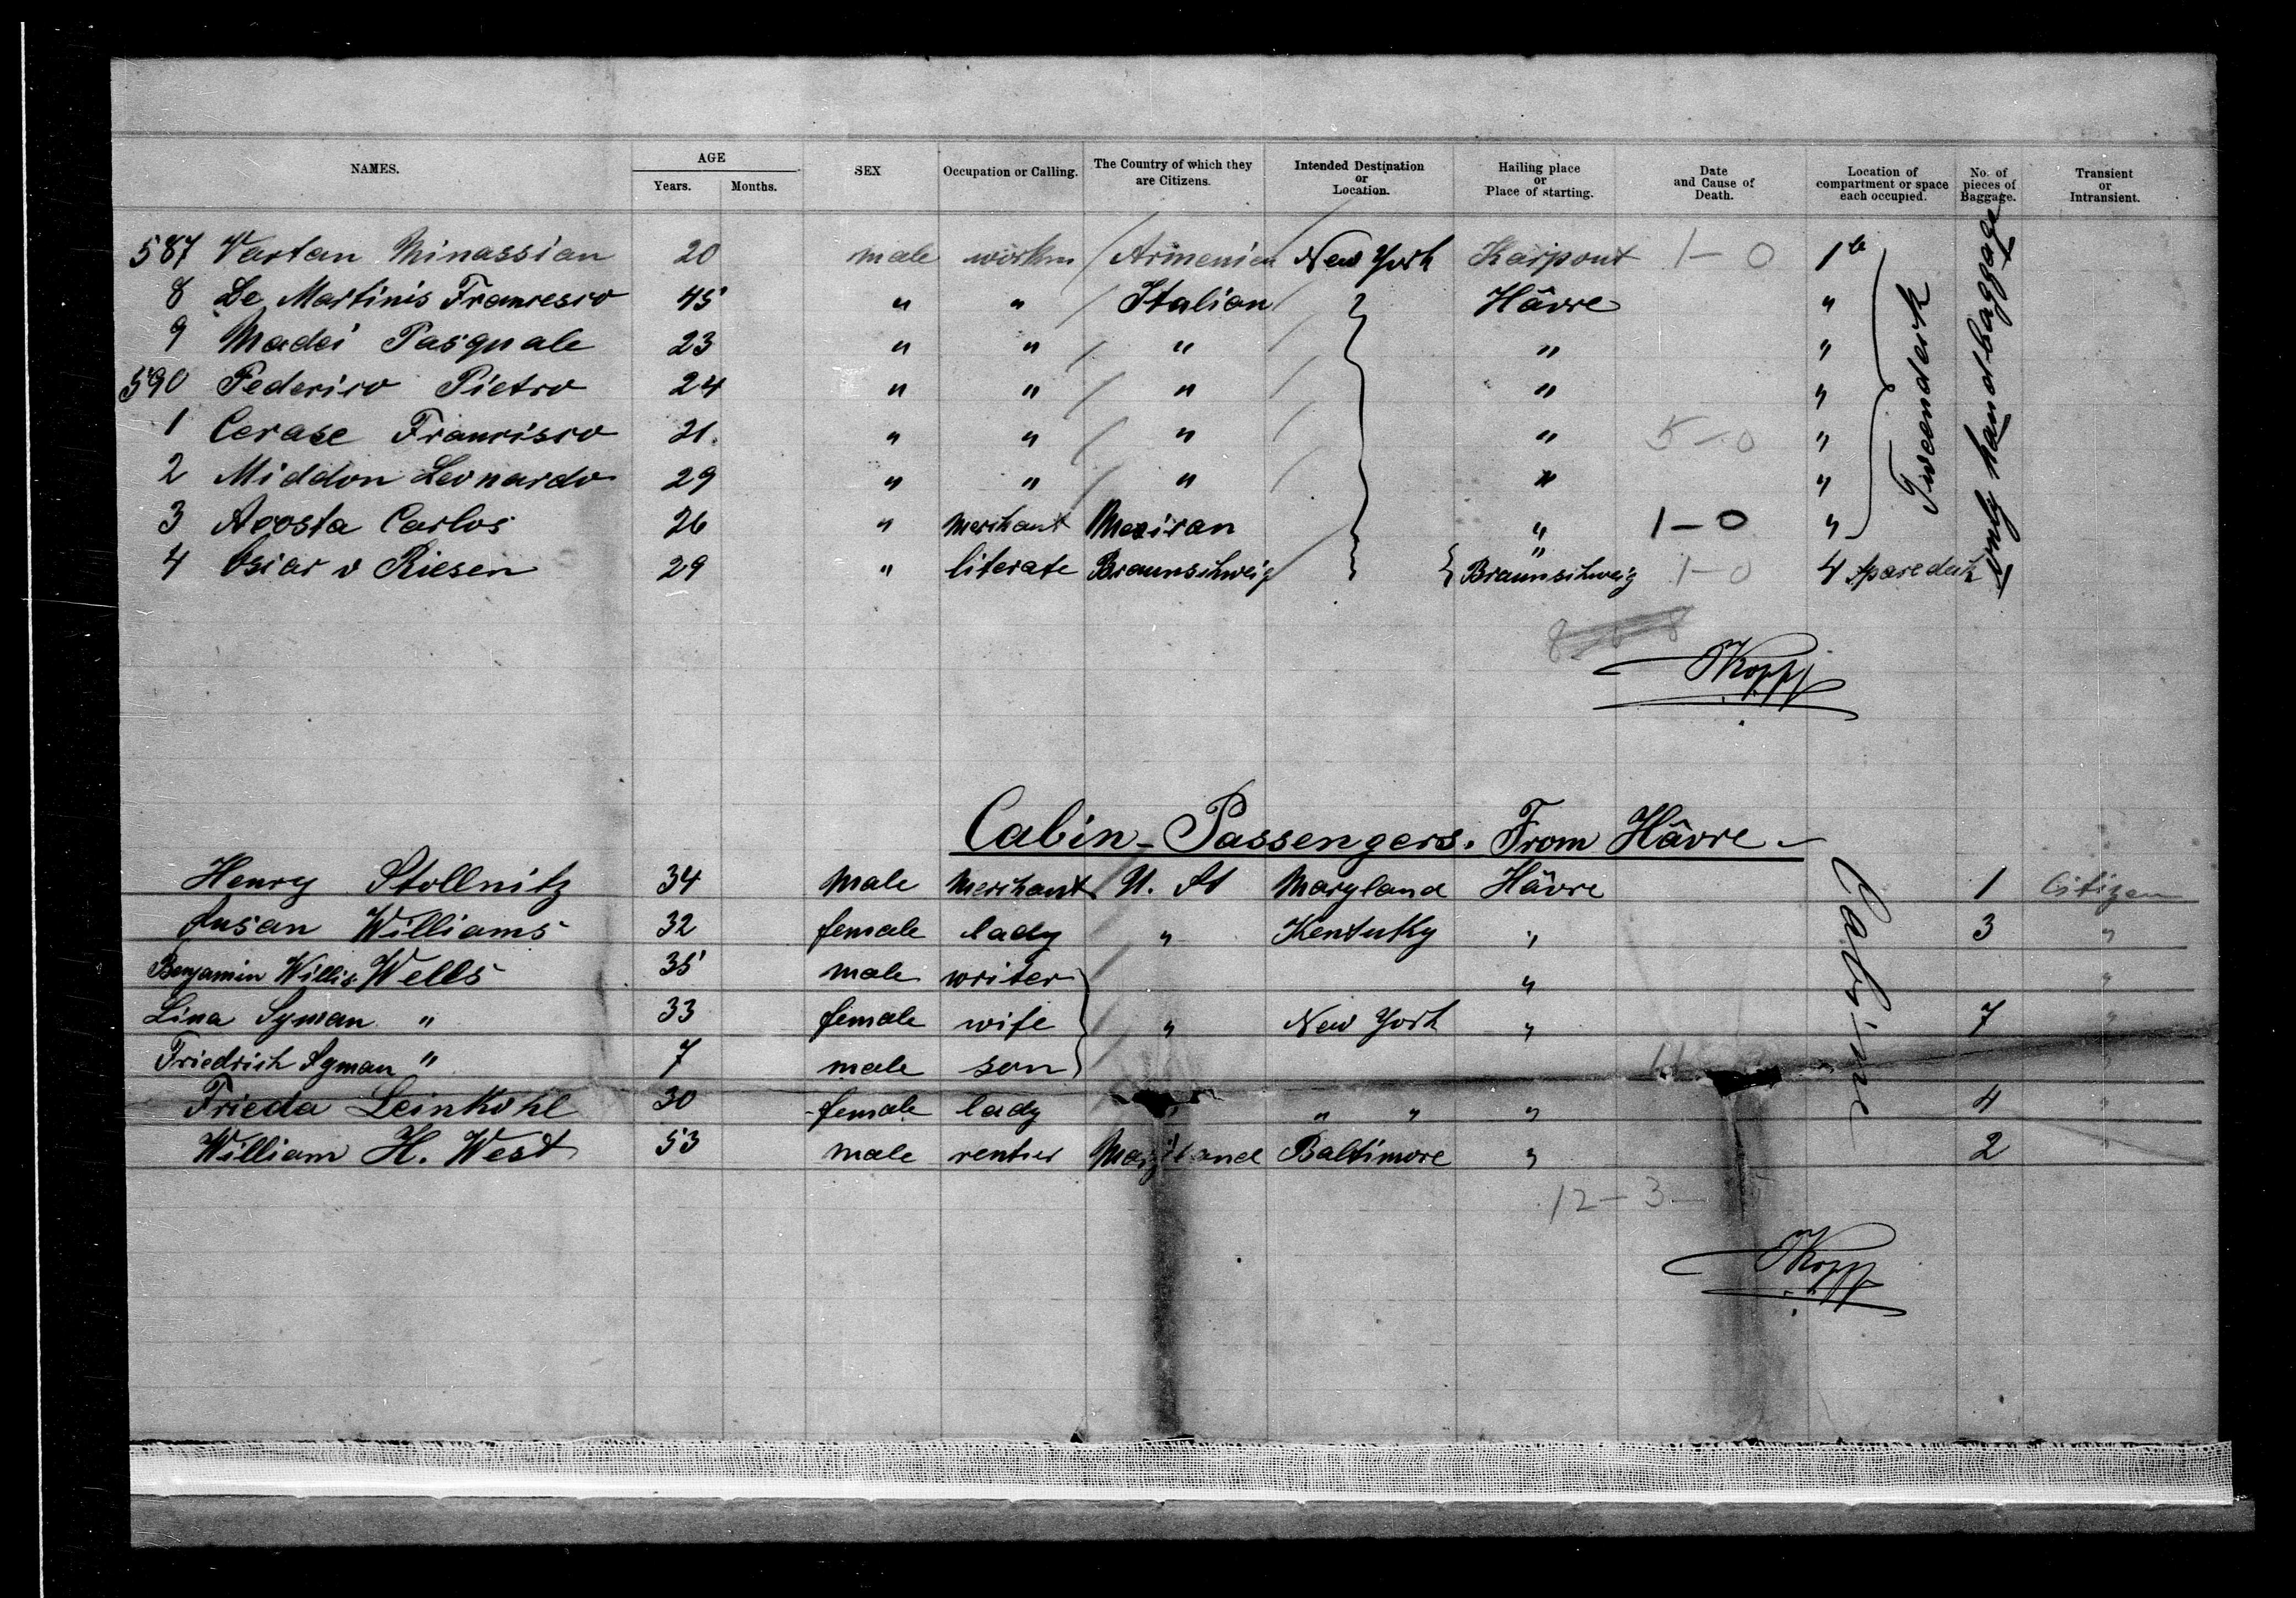 NAMES. AGE Years. Months. SEX Occupation or Calling. The Country of which they are Citizens. Intended Destination or Location. Hailing place or Place of starting. Date and Cause of Death. Location of compartment or space each occupied. No. of pieces of Baggage. Transient or Intransient.
587 Vartan Minassian 20 male workm Armenien New York Karpout 1-0 1b
8 De Martinis Francesco 45 " " Italian Hâvre "
9 Madei Pasquale 23 " " " " "
590 Federico Pietro 24 " " " " "
1 Cerase Francisco 21 " " " " 5-0 "
2 Middon Leonardo 29 " " " " "
3 Acosta Carlos 26 " merchant Mexican " 1-0 "
4 Oscar v Riesen 29 " literate Braunschweig " Braunschweig 1-0 4 sparedeck
Tweendeck
only handbaggage
Kopp
Cabin-Passengers. From Hâvre-
Henry Stollnitz 34 male merchant U. St Maryland Hâvre 1 Citizen
Susan Williams 32 female lady " Kentuky " 3 "
Benjamin Willis Wells 35 male writer " "
Lina Syman " 33 female wife " New York " 7 "
Friedrich Syman " 7 male son
Frieda Leinkohl 30 female lady " " " 4 "
William H. West 53 male rentier Maryland Baltimore " 2 "
Cabine
12-3-
Kopp